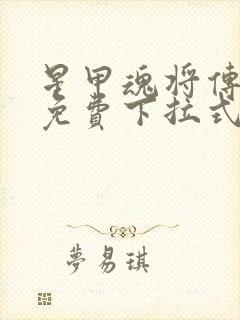 星甲魂将傳
免費下拉式
夢易琪